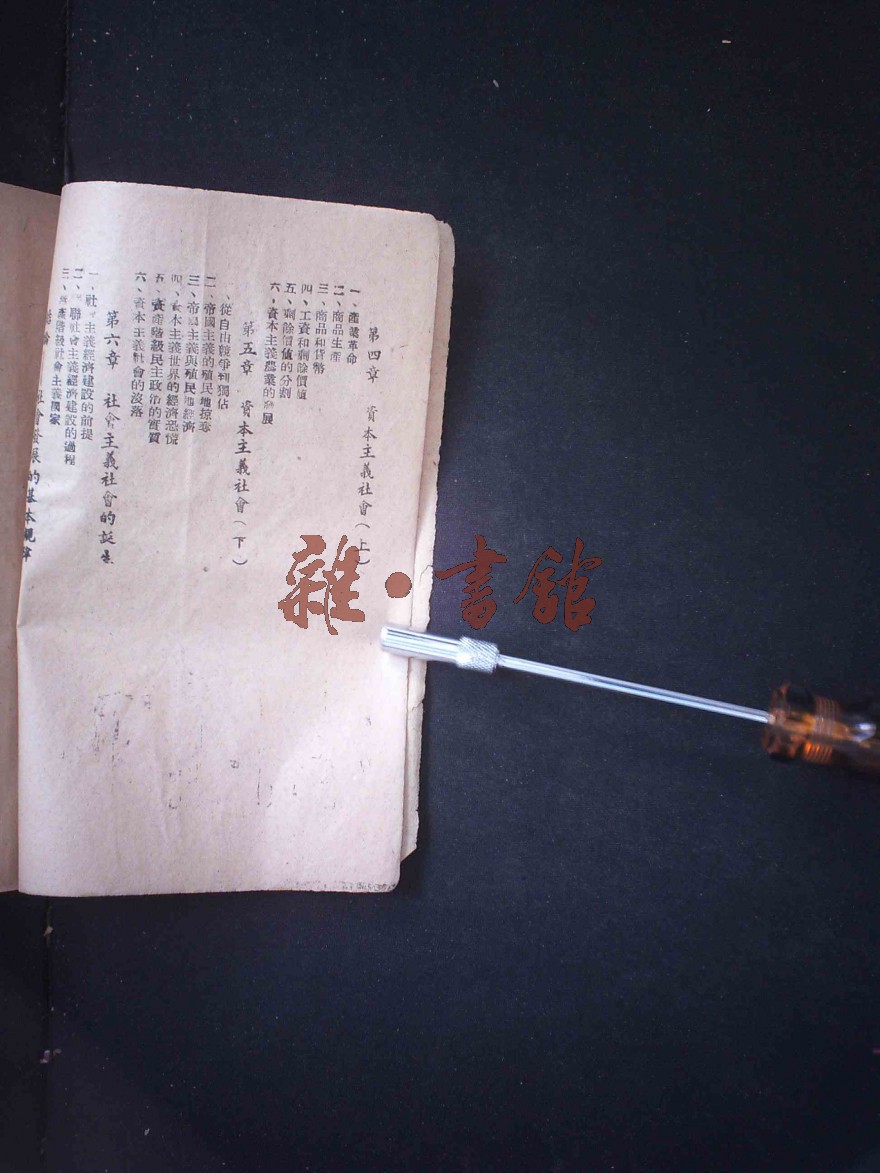 第四章 資本主義社會（上）
一、產業革命
二、商品生產
三、商品和貨幣
四、工資和剩餘價值
五、剩餘價值的分割
六、資本主義農業的發展
第五章 資本主義社會（下）
、從自由競爭到獨佔
二、帝國主義的殖民地掠奪
三、帝國主義與殖民地經濟
四、資本主義世界的經濟恐慌
五、資產階級民主政治的實質
六、資本主義社會的沒落
第六章 社會主義社會的誕生
一、社會主義經濟建設的前提
二、蘇聯社會主義經濟建設的過程
三、無產階級社會主義國家
結論 社會發展的基本規律
雜·書館